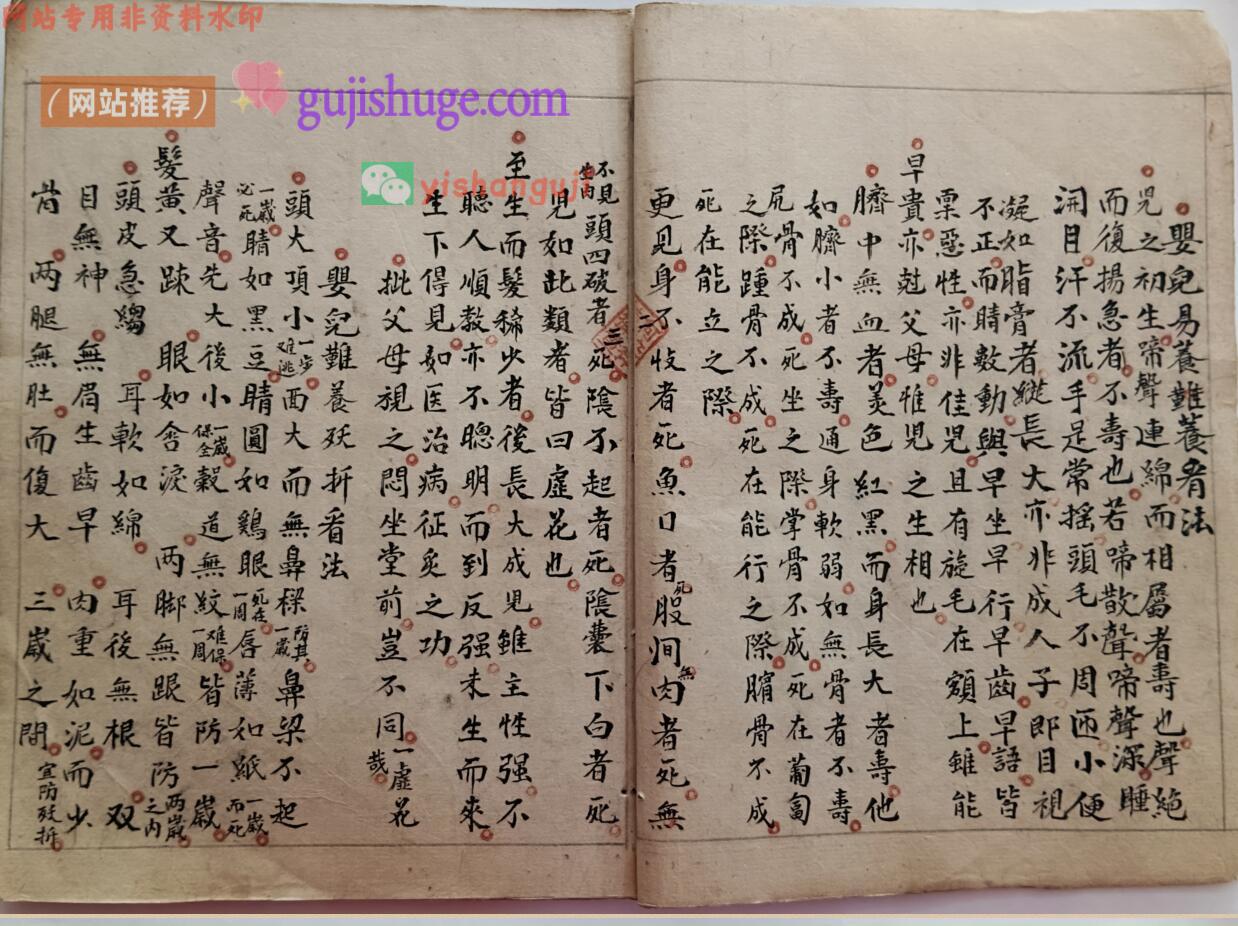 网站专用非资料水印
（网站推荐）
gujishuge.com
yishanguji
嬰兒易養難養看法
兒之初生啼聲連綿而相屬者壽也聲絕
而復揚急者不壽也若啼散聲啼聲深睡
開目汗不流手足常搖頭毛不周匝小便
凝如脂膏者縱長大亦非成人子即目視
不正而睛數動與早坐早行早齒早語皆
稟惡性亦非佳兒且有旋毛在額上雖能
早貴亦尅父母惟兒之生相也
臍中無血者美色紅黑而身長大者壽他
如臍小者不壽通身軟弱如無骨者不壽
尻骨不成死坐之際掌骨不成死在匍匐
之際踵骨不成死在能行之際臏骨不成
死在能立之際
更見身不收者死魚口者死股间無肉者死無
二
三
不見生肉頭四破者死陰不起者死陰囊下白者死
兒如此類者皆曰虛花也
至生而髮稀少者後長大成兒雖主性强不
聽人順教亦不聰明而到反强未生而來
生下得見如医治病征炙之功
批父母視之悶坐堂前豈不同一虛花哉
嬰兒難養殀折看法
頭大頂小一步难逃面大而無鼻樑防其一歲鼻梁不起
一歲必死睛如黑豆睛圓如鷄眼死在一周唇薄如紙一歲而死
聲音先大後小一歲保全穀道無紋难保一周皆防一歲
髮黃又踈 眼如含淚 兩脚無跟皆防两歲之内
頭皮急縐 耳軟如綿 耳後無根 双
目無神 無眉生齒早 肉重如泥而少
肯 两腿無肚而復大 三歲之間宜防殀折